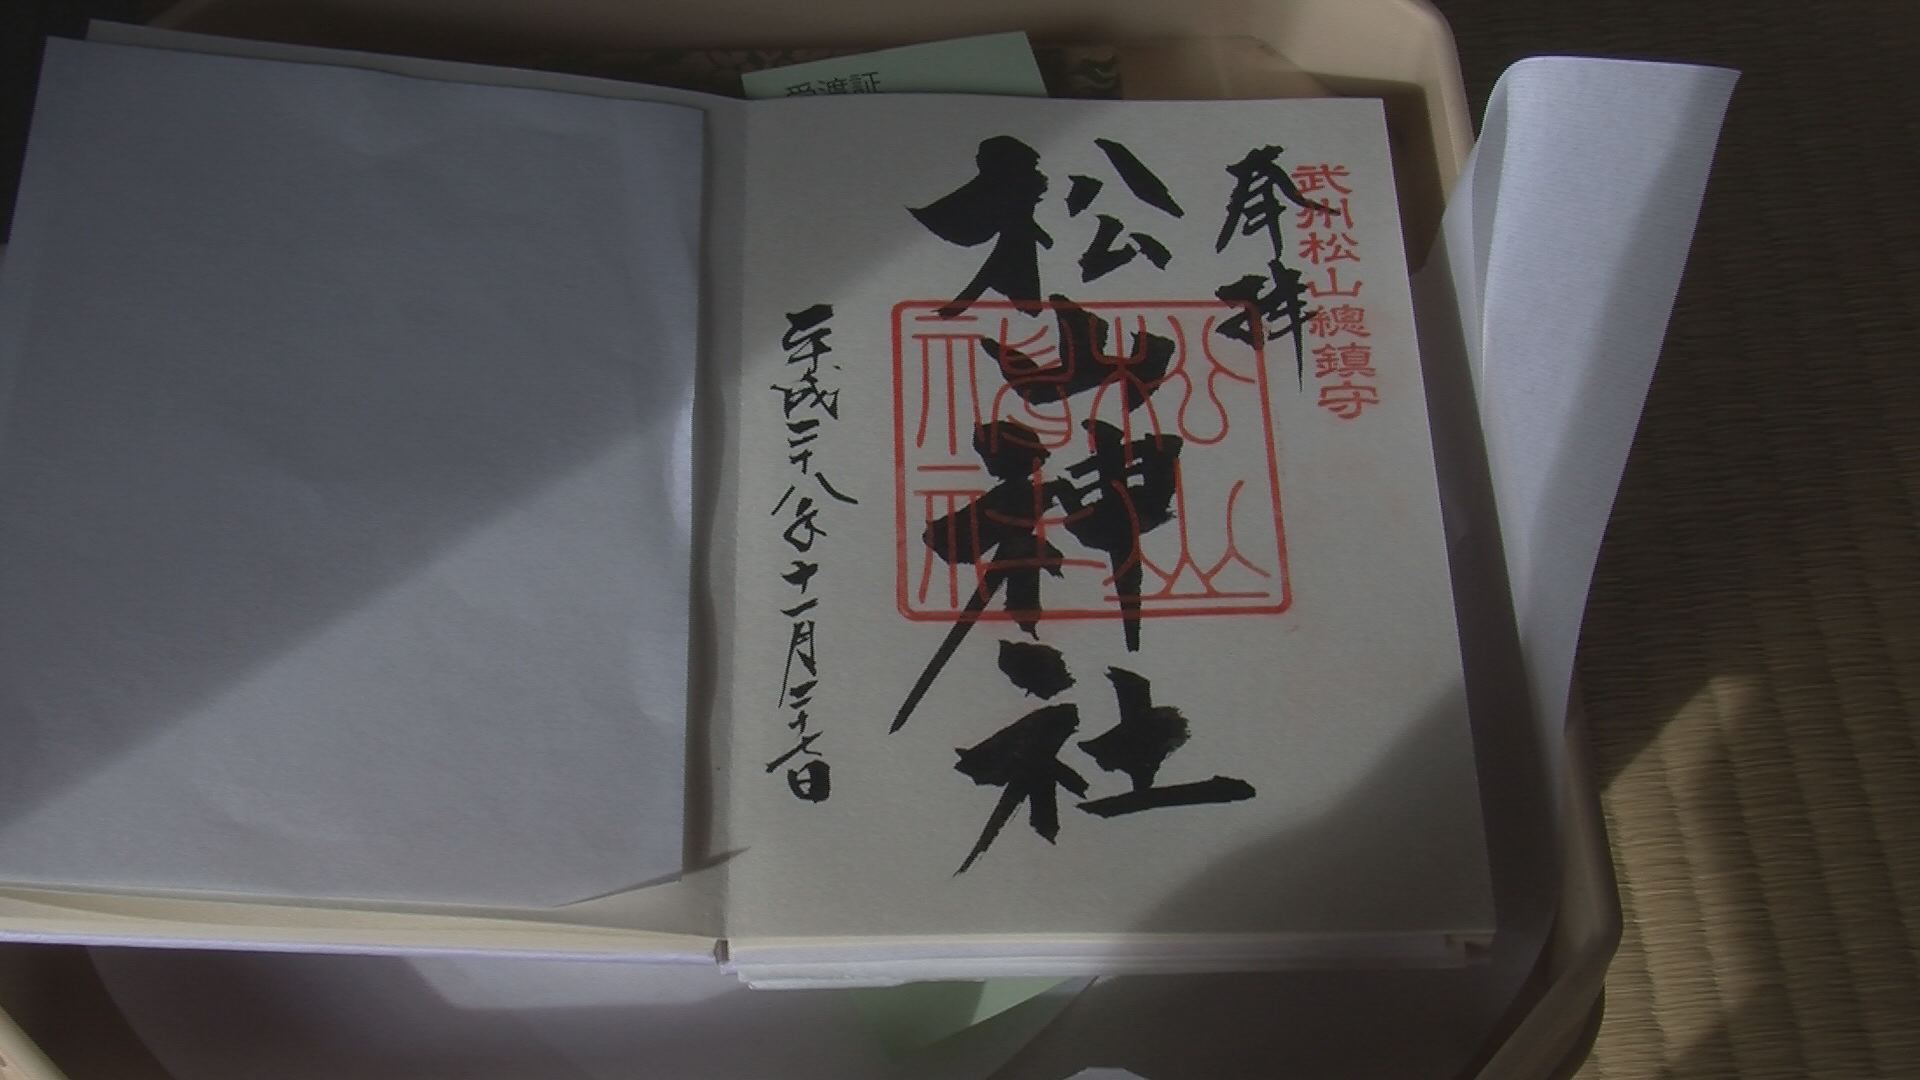 受渡証
武州松山總鎮守
奉拝
松山神社
松山神社
平成二十八年十一月二十七日